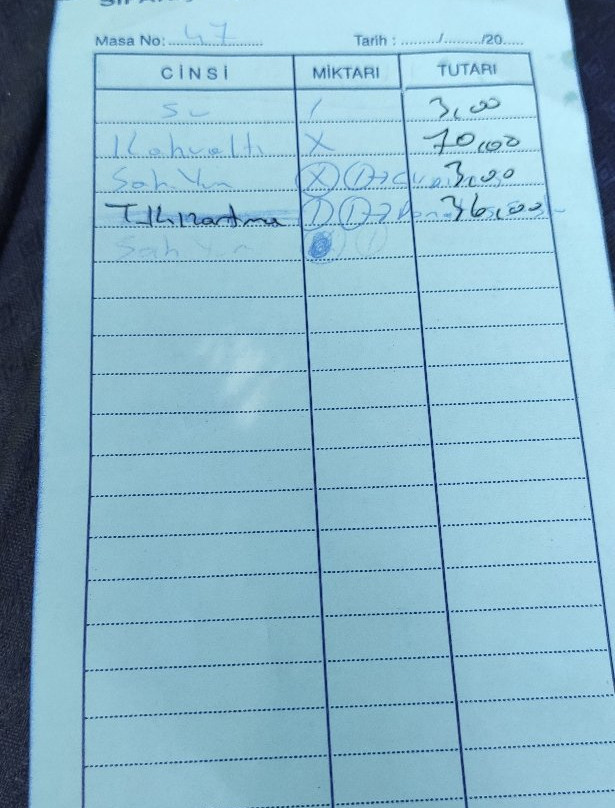 Masa No: 47 Tarih : ......../......../20.....
CİNSİ MİKTARI TUTARI
Su / 3,00
Kahvaltı X 70,00
Sah Yum X 1 3,00
T.Kızartma 1 1 36,00
Sah Yum 1